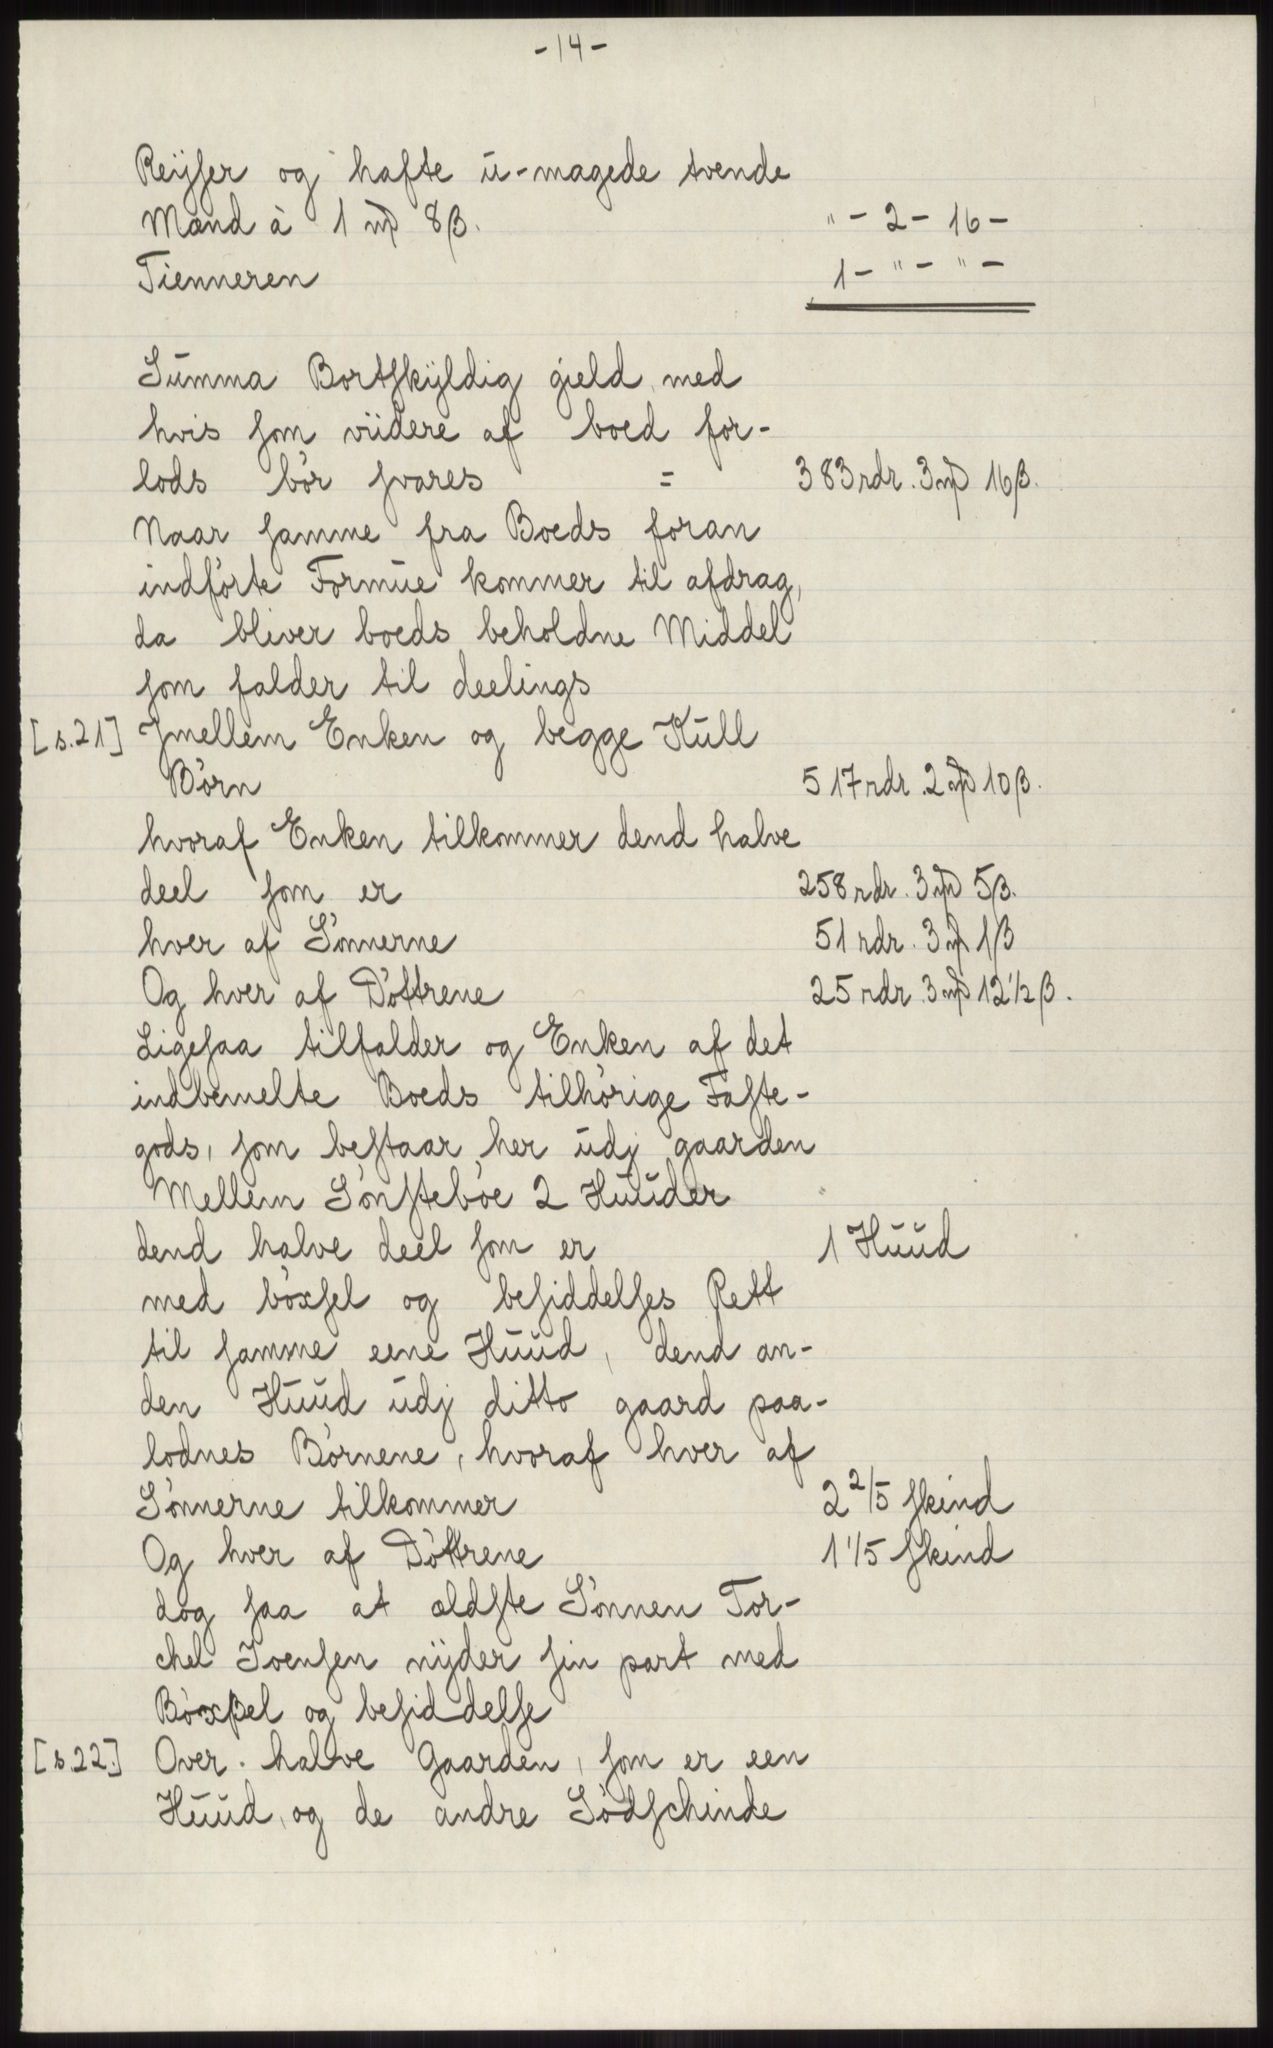 -14-
Reÿser og hafte ū-magede tvende
Mænd à 1 mƿ 8β. " - 2 - 16 -
Tienneren 1 - " - " -
Sūmma Bortskÿldig gield, med
hvis som vūdere af boed for-
lods bör svares = 383 rdr. 3 mƿ 16β.
Naar samme fra Boeds foran
indförte Formūe kommer til afdrag,
da bliver boeds beholdne Middel
som falder til deelings
[s.21] Jmellem Enken og begge Kūll
Börn 517 rdr. 2 mƿ 10β.
hvoraf Enken tilkommer dend halve
deel som er 258 rdr. 3 mƿ 5β.
hver af Sönnerne 51 rdr. 3 mƿ 1β
Og hver af Döttrene 25 rdr. 3 mƿ 12 1/2 β.
Ligesaa tilfalder og Enken af det
indbemelte Boeds tilhörige Faste-
gods, som bestaar her ūdj gaarden
Mellem Sönsteböe 2 Hūūder
dend halve deel som er 1 Hūūd
med böxsel og besiddelses Rett
til samme eene Hūūd, dend an-
den Hūūd ūdj ditto gaard paa-
lodnes Börnene, hvoraf hver af
Sönnerne tilkommer 2 2/5 skind
Og hver af Döttrene 1 1/5 skind
dog saa at ældste Sönnen Tor-
chel Svensen nÿder sin part med
Böxβel og besiddelse
[s.22.] Over halve Gaarden, som er een
Hūūd, og de andre Södschinde